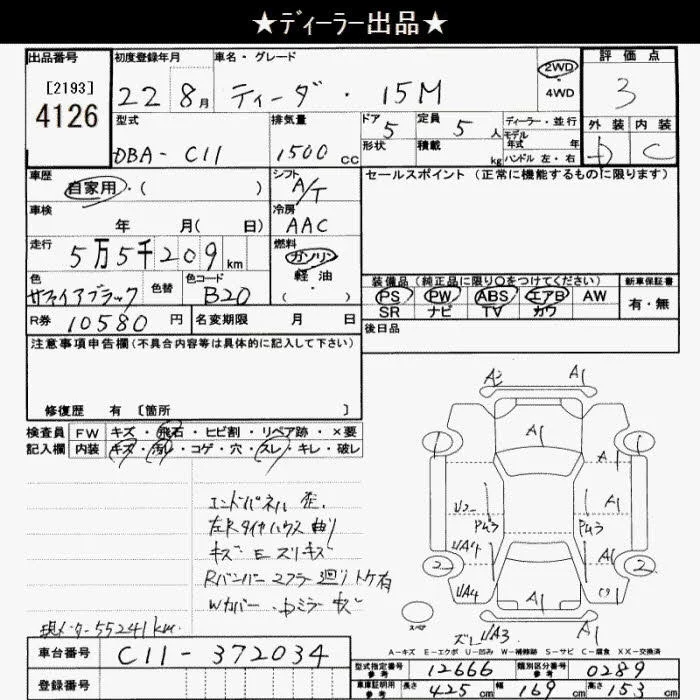 ★ディーラー出品★
出品番号
[2193]
4126
初度登録年月
22 8月
車名・グレード
ティーダ・ 15M
2WD
・
4WD
評価点
3
外装 内装
D C
型式
DBA- C11
排気量
1500 cc
ドア
5
定員
5 人
形状
積載
kg
ディーラー・並行
モデル
年式 年
ハンドル 左・右
車歴
自家用・( )
シフト
A/T
セールスポイント (正常に機能するものに限ります)
車検
年 月( 日)
冷房
AAC
走行
5万5千209km
燃料
ガソリン
軽油
( )
色
サファイアブラック
色替
色コード
B20
装備品(純正品に限り○をつけてください)
PS PW ABS エアB AW
SR ナビ TV カワ
新車保証書
有・無
R券 10580 円
名変期限 月 日
後日品
注意事項申告欄(不具合内容等は具体的に記入して下さい)
修復歴 有 [箇所 ]
検査員
記入欄
FW キズ・飛石・ヒビ割・リペア跡・×要
内装 キズ・汚れ・コゲ・穴・スレ・キレ・破レ
エンドパネル 歪.
左Rタイヤハウス 曲リ
キズ E スリキズ
Rバンパー マフラー廻リトケ有
Wカバー
現メーター55241km.
A2 A1
A1
1 A1 1
U2 A1
P43 P43
UA4 A1
2 2
UA4
A1
スペア
UA3 A1
A-キズ E-エクボ U-凹み W-補修跡 S-サビ C-腐食 XX-交換済
車台番号 C11-372034
登録番号
型式指定番号
参考
12666
類別区分番号
参考
0289
車庫証明用
参考
長さ 425 cm 幅 169 cm 高さ 153 cm